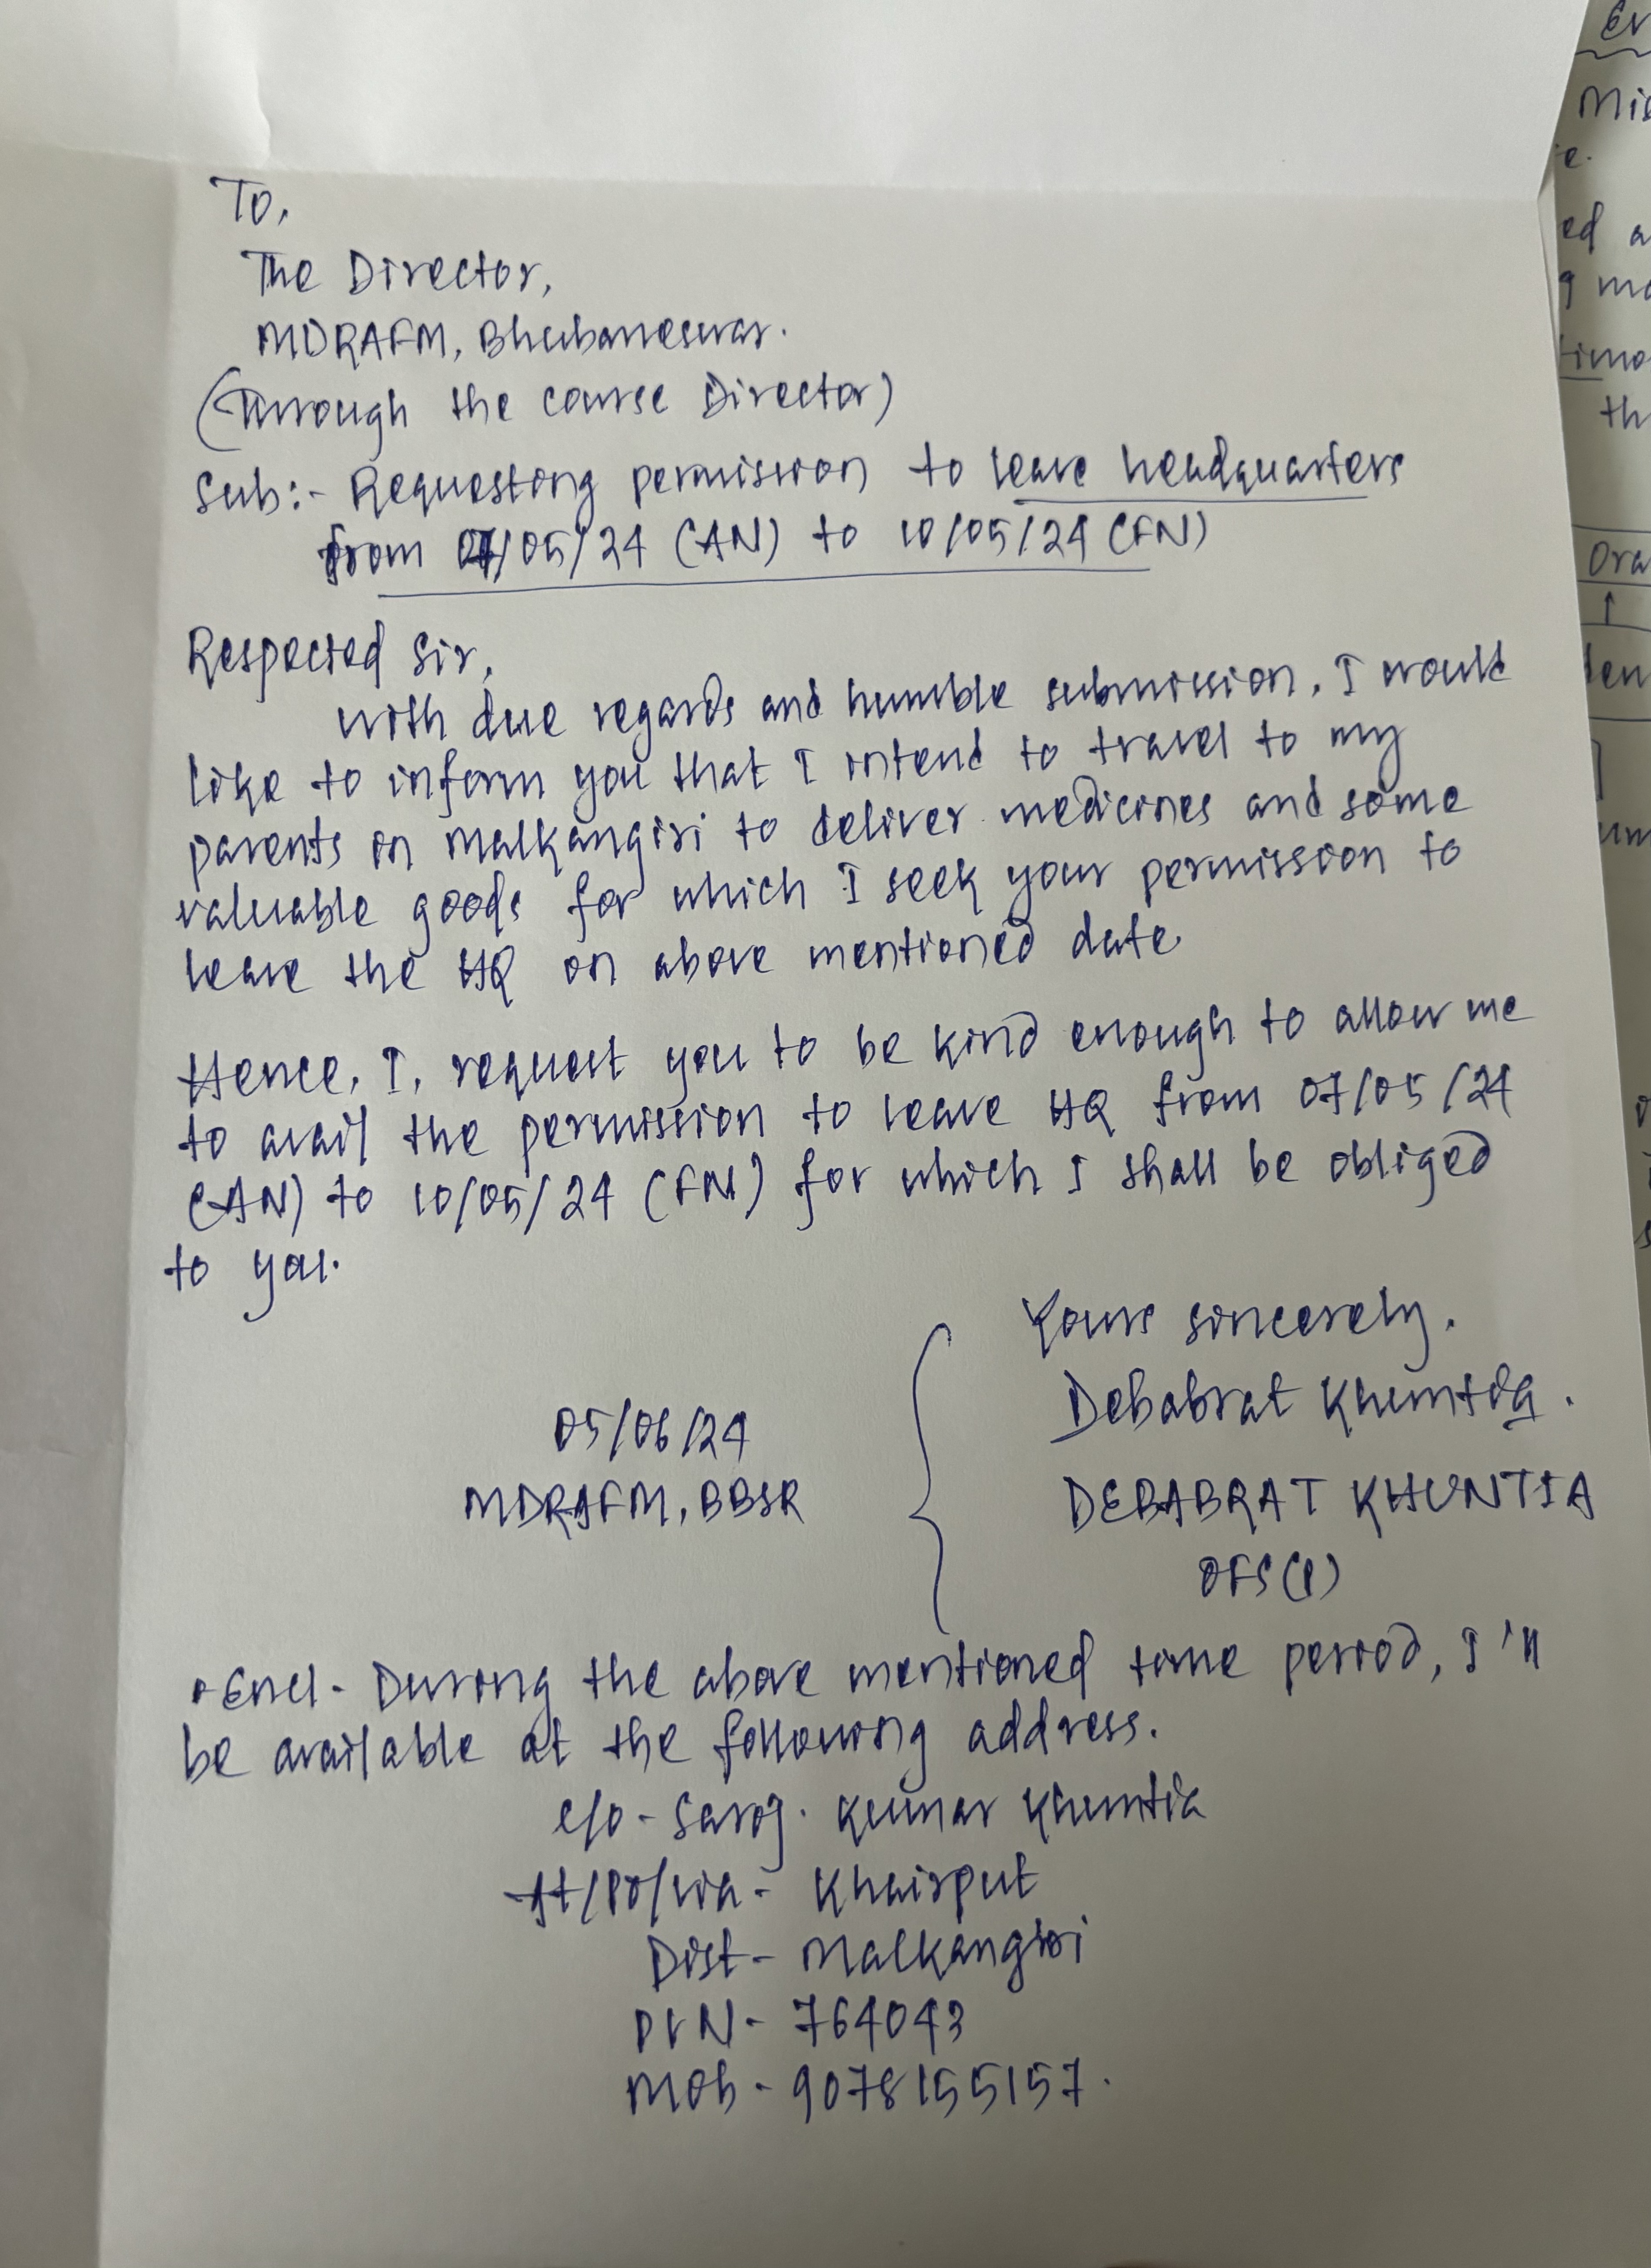 To,
The Director,
MDRAFM, Bhubaneswar.
(Through the course Director)
Sub:- Requesting permission to leave headquarters
from 07/05/24 (AN) to 10/05/24 (FN)
Respected Sir,
with due regards and humble submission, I would
like to inform you that I intend to travel to my
parents in Malkangiri to deliver medicines and some
valuable goods for which I seek your permission to
leave the HQ on above mentioned date
Hence, I, request you to be kind enough to allow me
to avail the permission to leave HQ from 07/05/24
(AN) to 10/05/24 (FN) for which I shall be obliged
to you.
Yours sincerely,
Debabrat Khuntia.
05/06/24
MDRAFM, BBSR
DEBABRAT KHUNTIA
OFS(P)
Encl- During the above mentioned time period, I'll
be available at the following address.
C/O- Saroj Kumar Khuntia
At/Po/Via- Khairput
Dist- Malkangiri
PIN- 764043
Mob- 9078155157.
Mis
e.
ed a
th
Ora